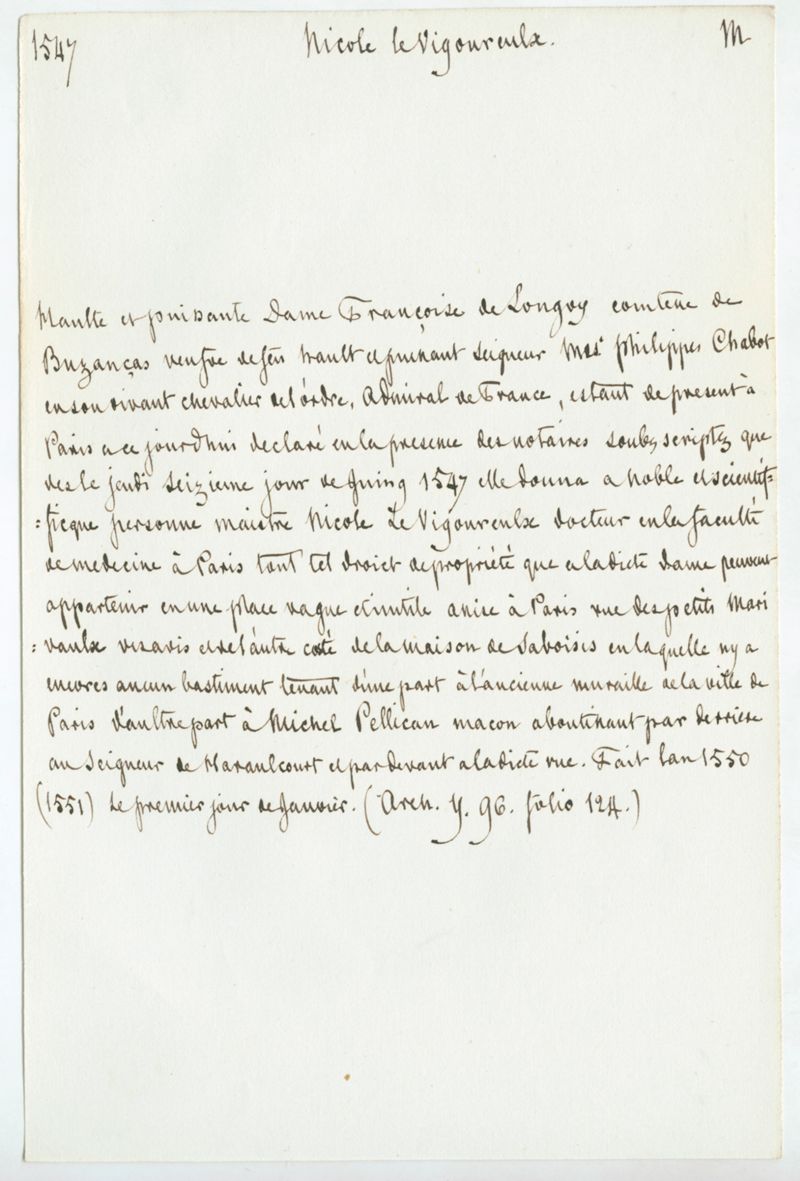 1547 Nicole le Vigoureulx. M
Haulte et puissante Dame Françoise de Longvy comtesse de
Buzanças veufve de feu hault et puissant Seigneur Mes. Philippes Chabot
en son vivant chevalier de l'ordre, Admiral de France, estant de present à
Paris a ce jourd'hui declaré en la presence des notaires soubz scriptz que
des le jeudi seizieme jour de Juing 1547 elle donna a noble et scientif=
=ficque personne maistre Nicole Le Vigoureulx docteur en la faculté
de medecine à Paris tout tel droict de propriété que a ladicte dame peuvent
appartenir en une place vague et inutile assise à Paris rue des petits Mari
=vaulx vis avis et de l'autre costé de la maison de Savoisis en laquelle ny a
encores aucun bastiment tenant d'une part à l'ancienne muraille de la ville de
Paris d'aultre part à Michel Pellican macon aboutissant par derriere
au Seigneur de Haraulcourt et par devant a ladicte rue. Fait lan 1550
(1551) le premier jour de Janvier. (Arch. Y. 96. folio 124.)